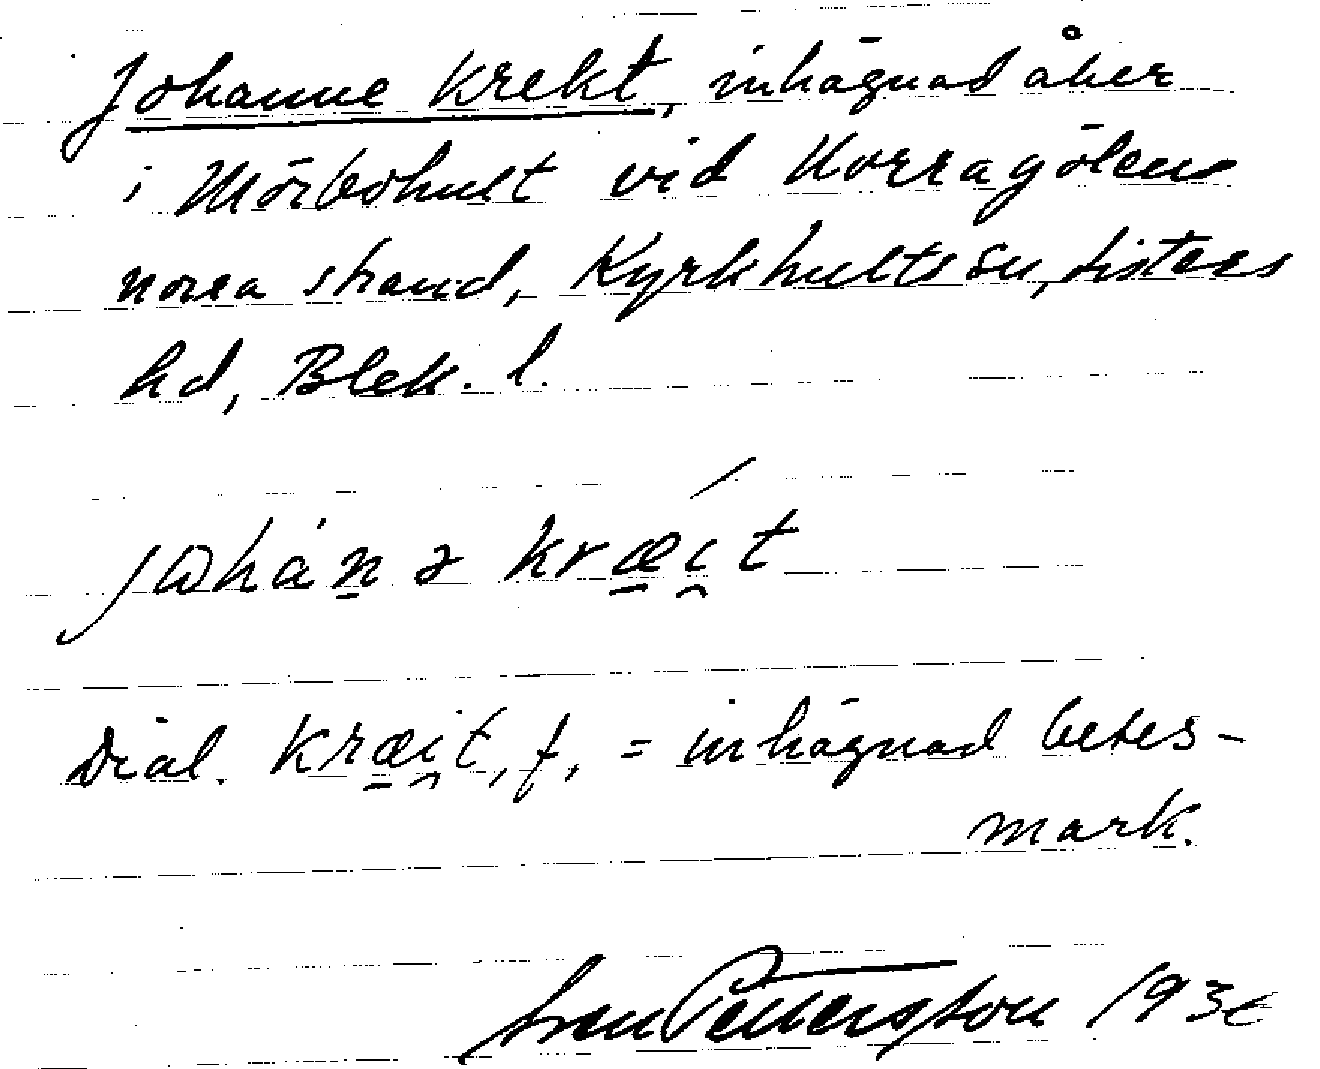 Johanne Krekt, inhägnad åker
i Mörbohult vid Korragölens
norra strand, Kyrkhults sn, Listers
hd, Blek. l.
johánə kræi̯t
Dial. kræi̯t, f, = inhägnad betes-
mark.
Pettersson